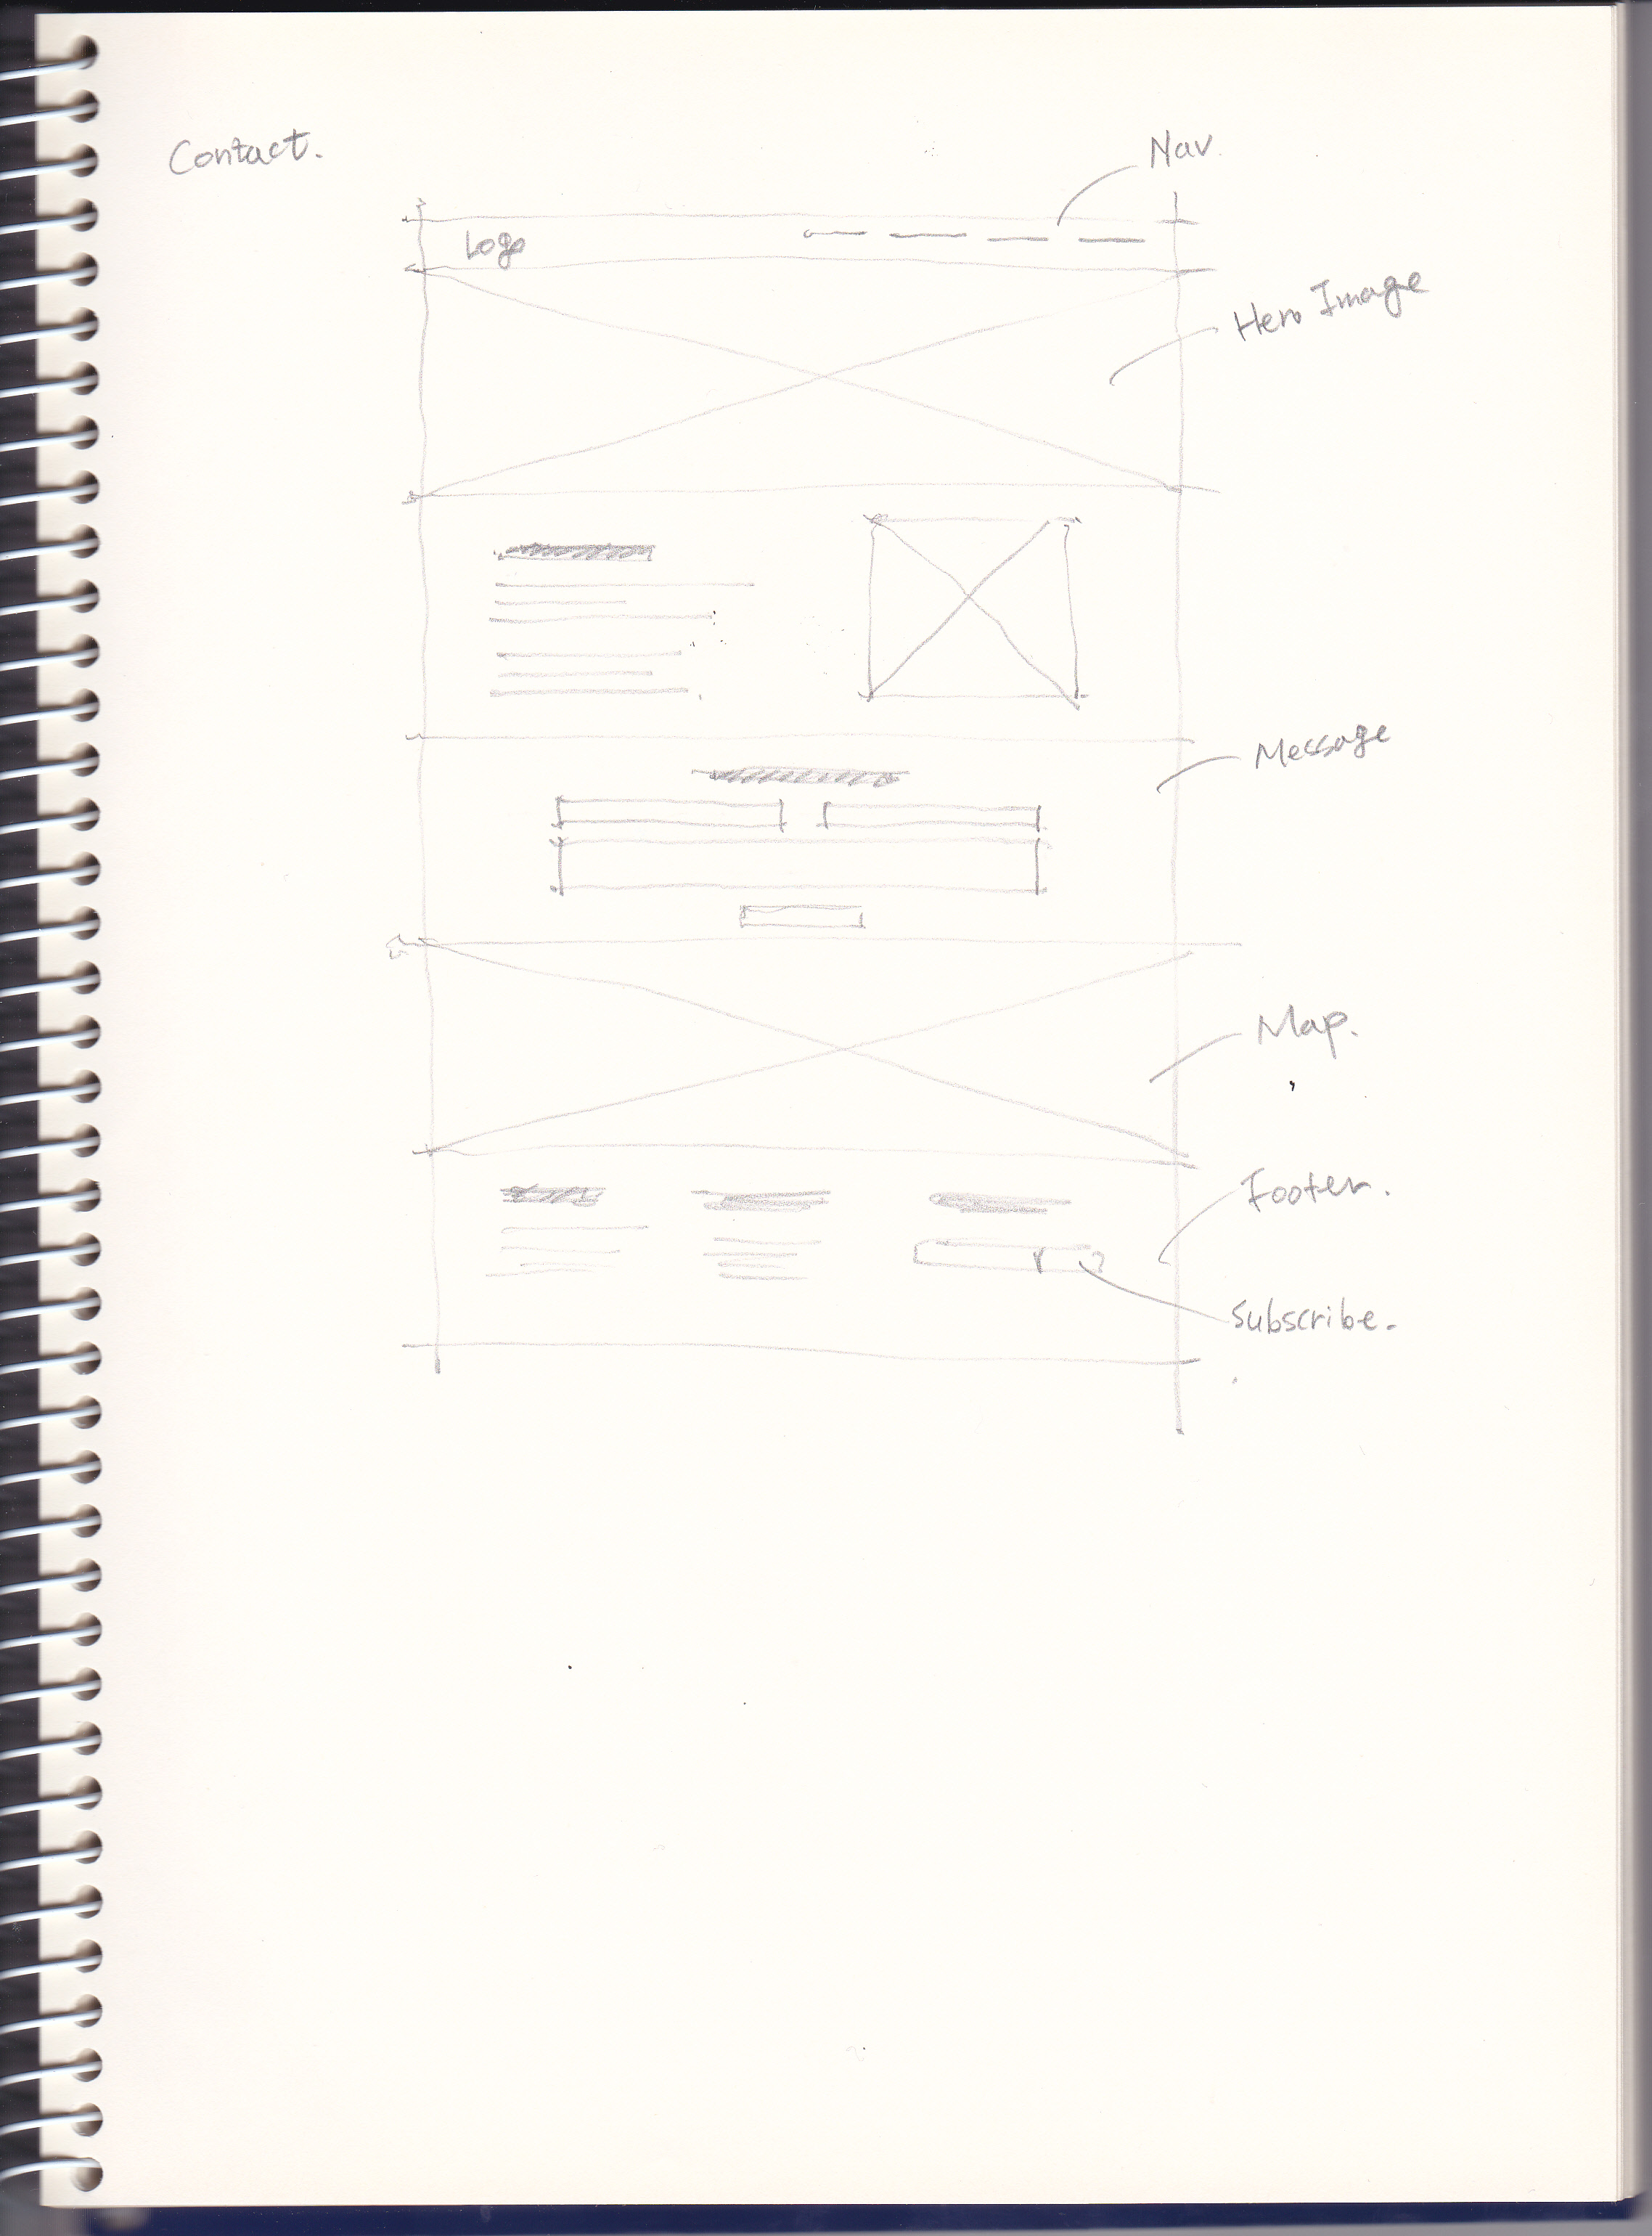 Contact.
Nav.
Logo
Hero Image
Message
Map.
Footer.
Subscribe.